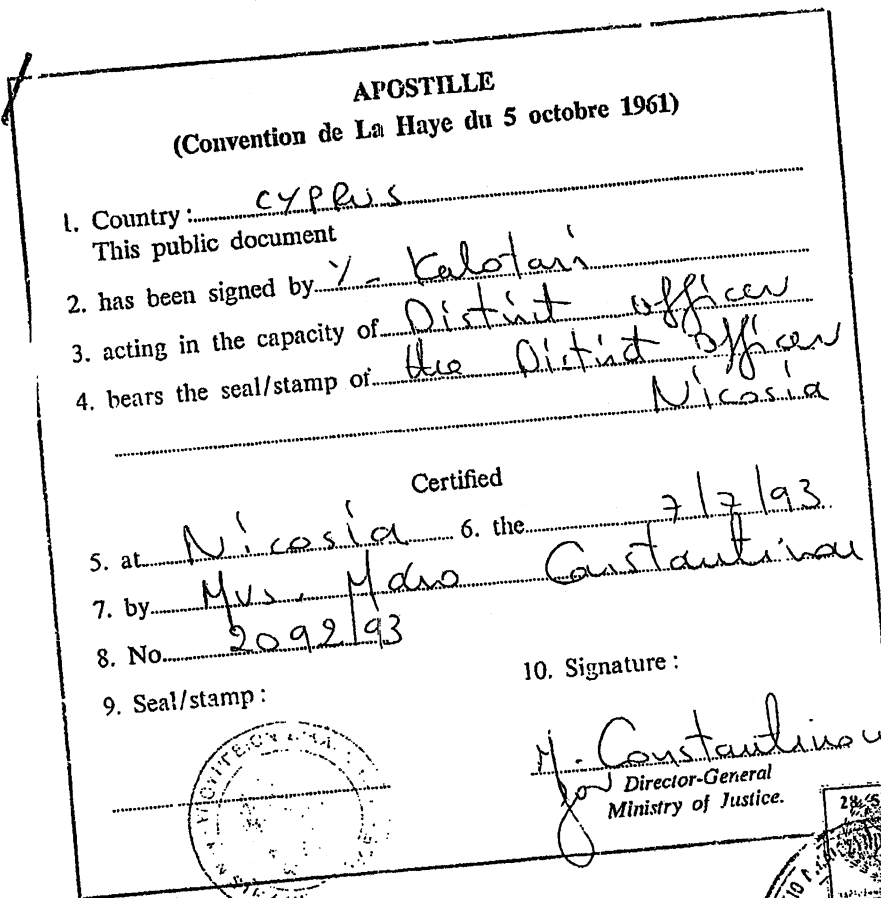 APOSTILLE
(Convention de La Haye du 5 octobre 1961)
1. Country: CYPRUS
This public document
2. has been signed by Y- Kalotari
3. acting in the capacity of District officer
4. bears the seal/stamp of the District Officer
Nicosia
Certified
5. at Nicosia 6. the 7/7/93
7. by Mrs. Constantinou
8. No. 2092/93
9. Seal/stamp:
10. Signature:
M. Constantinou
for Director-General
Ministry of Justice.